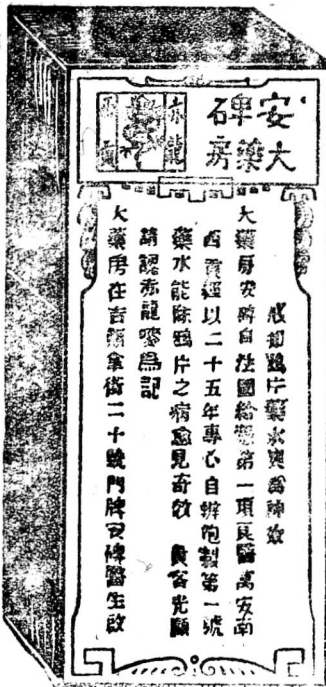 安碑
大藥房
赤龍
戒却鴉片藥水神效
大藥房安碑自法國給憑第一項良醫安南
西貢經以二十五年專心自辦炮製第一號
藥水能除鴉片之病愈見奇效 貴客光顧
請認赤龍嘜爲記
大藥房在吉拿街二十號門牌安碑醫生啟